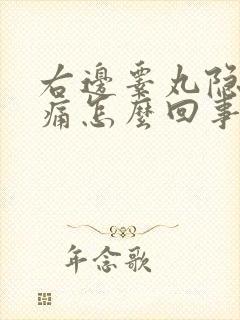 右邊睾丸隐
痛怎麼回事
年念歌